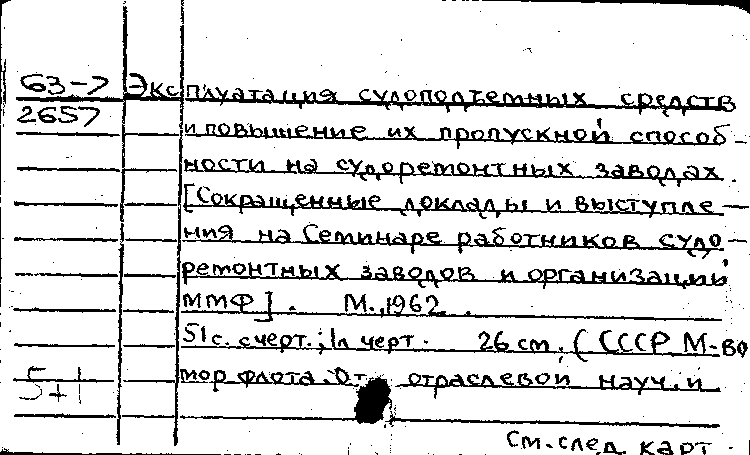 63-7 Эксплуатация судоподъемных средств
2657 и повышение их пропускной способ-
ности на судоремонтных заводах.
[Сокращенные доклады и выступле-
ния на Семинаре работников судо-
ремонтных заводов и организаций
ММФ]. М., 1962.
51 с. с черт.; 1 л черт. 26 см. (СССР М-во
5+1 мор флота. От отраслевой науч. и
См. след. карт.